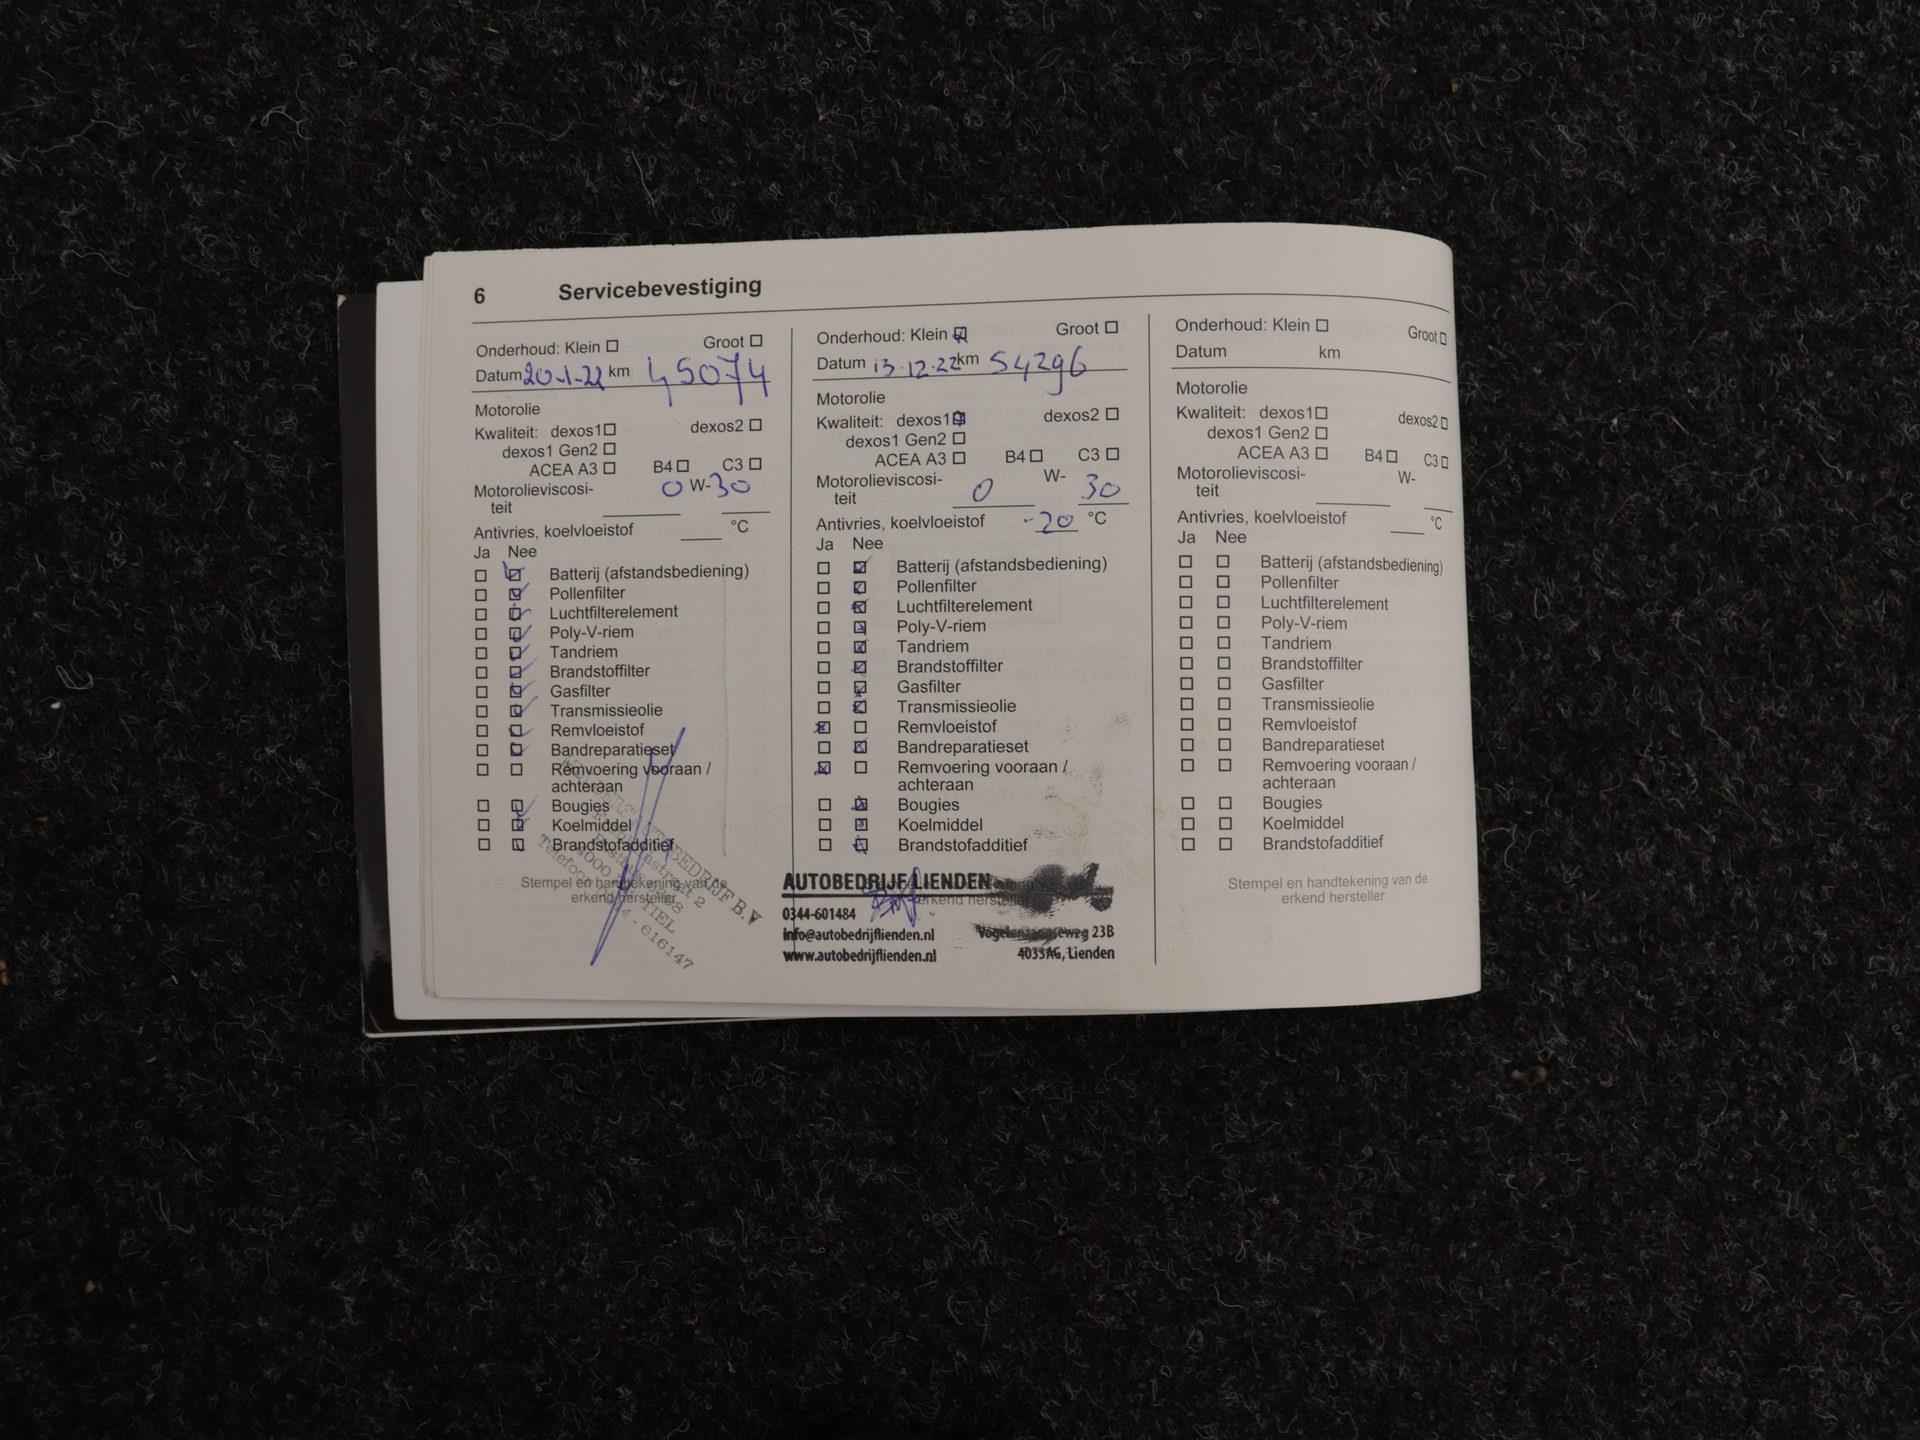 6 Servicebevestiging
Onderhoud: Klein Groot
Datum 20-1-22 km 45074
Motorolie
Kwaliteit: dexos1 dexos2
dexos1 Gen2
ACEA A3 B4 C3
Motorolieviscosi- 0 W-30
teit
Antivries, koelvloeistof °C
Ja Nee
Batterij (afstandsbediening)
Pollenfilter
Luchtfilterelement
Poly-V-riem
Tandriem
Brandstoffilter
Gasfilter
Transmissieolie
Remvloeistof
Bandreparatieset
Remvoering vooraan /
achteraan
Bougies
Koelmiddel
Brandstofadditief
Stempel en handtekening van de
erkend hersteller
B.V
TIEL
616147
Onderhoud: Klein Groot
Datum 13-12-22 km 54296
Motorolie
Kwaliteit: dexos1 dexos2
dexos1 Gen2
ACEA A3 B4 C3
Motorolieviscosi- W-
teit 0 30
Antivries, koelvloeistof -20 °C
Ja Nee
Batterij (afstandsbediening)
Pollenfilter
Luchtfilterelement
Poly-V-riem
Tandriem
Brandstoffilter
Gasfilter
Transmissieolie
Remvloeistof
Bandreparatieset
Remvoering vooraan /
achteraan
Bougies
Koelmiddel
Brandstofadditief
AUTOBEDRIJF LIENDEN
erkend hersteller
0344-601484
info@autobedrijflienden.nl 23B
www.autobedrijflienden.nl 4033AG, Lienden
Onderhoud: Klein Groot
Datum km
Motorolie
Kwaliteit: dexos1 dexos2
dexos1 Gen2
ACEA A3 B4 C3
Motorolieviscosi- W-
teit
Antivries, koelvloeistof °C
Ja Nee
Batterij (afstandsbediening)
Pollenfilter
Luchtfilterelement
Poly-V-riem
Tandriem
Brandstoffilter
Gasfilter
Transmissieolie
Remvloeistof
Bandreparatieset
Remvoering vooraan /
achteraan
Bougies
Koelmiddel
Brandstofadditief
Stempel en handtekening van de
erkend hersteller